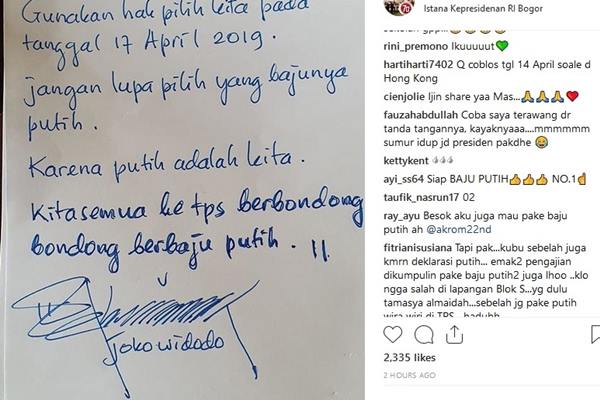 Gunakan hak pilih kita pada
tanggal 17 April 2019.
jangan lupa pilih yang bajunya
putih.
Karena putih adalah kita.
Kita semua ke tps berbondong
bondong berbaju putih. !!
joko widodo
Istana Kepresidenan RI Bogor
rini_premono Ikuuuuut💚
hartiharti7402 Q coblos tgl 14 April soale d
Hong Kong
cienjolie Ijin share yaa Mas...🙏🙏🙏❤
fauzahabdullah Coba saya terawang dr
tanda tangannya, kayaknyaaa....mmmmmm
sumur idup jd presiden pakdhe 😂
kettykent
ayi_ss64 Siap BAJU PUTIH👍👍👍 NO.1☝
taufik_nasrun17 02
ray_ayu Besok aku juga mau pake baju
putih ah @akrom22nd
fitrianisusiana Tapi pak...kubu sebelah juga
kmrn deklarasi putih... emak2 pengajian
dikumpulin pake baju putih2 juga lhoo ..klo
ngga salah di lapangan Blok S...yg dulu
tamasya almaidah...sebelah jg pake putih
wira wiri di TPS...haduhh
2,335 likes
2 HOURS AGO